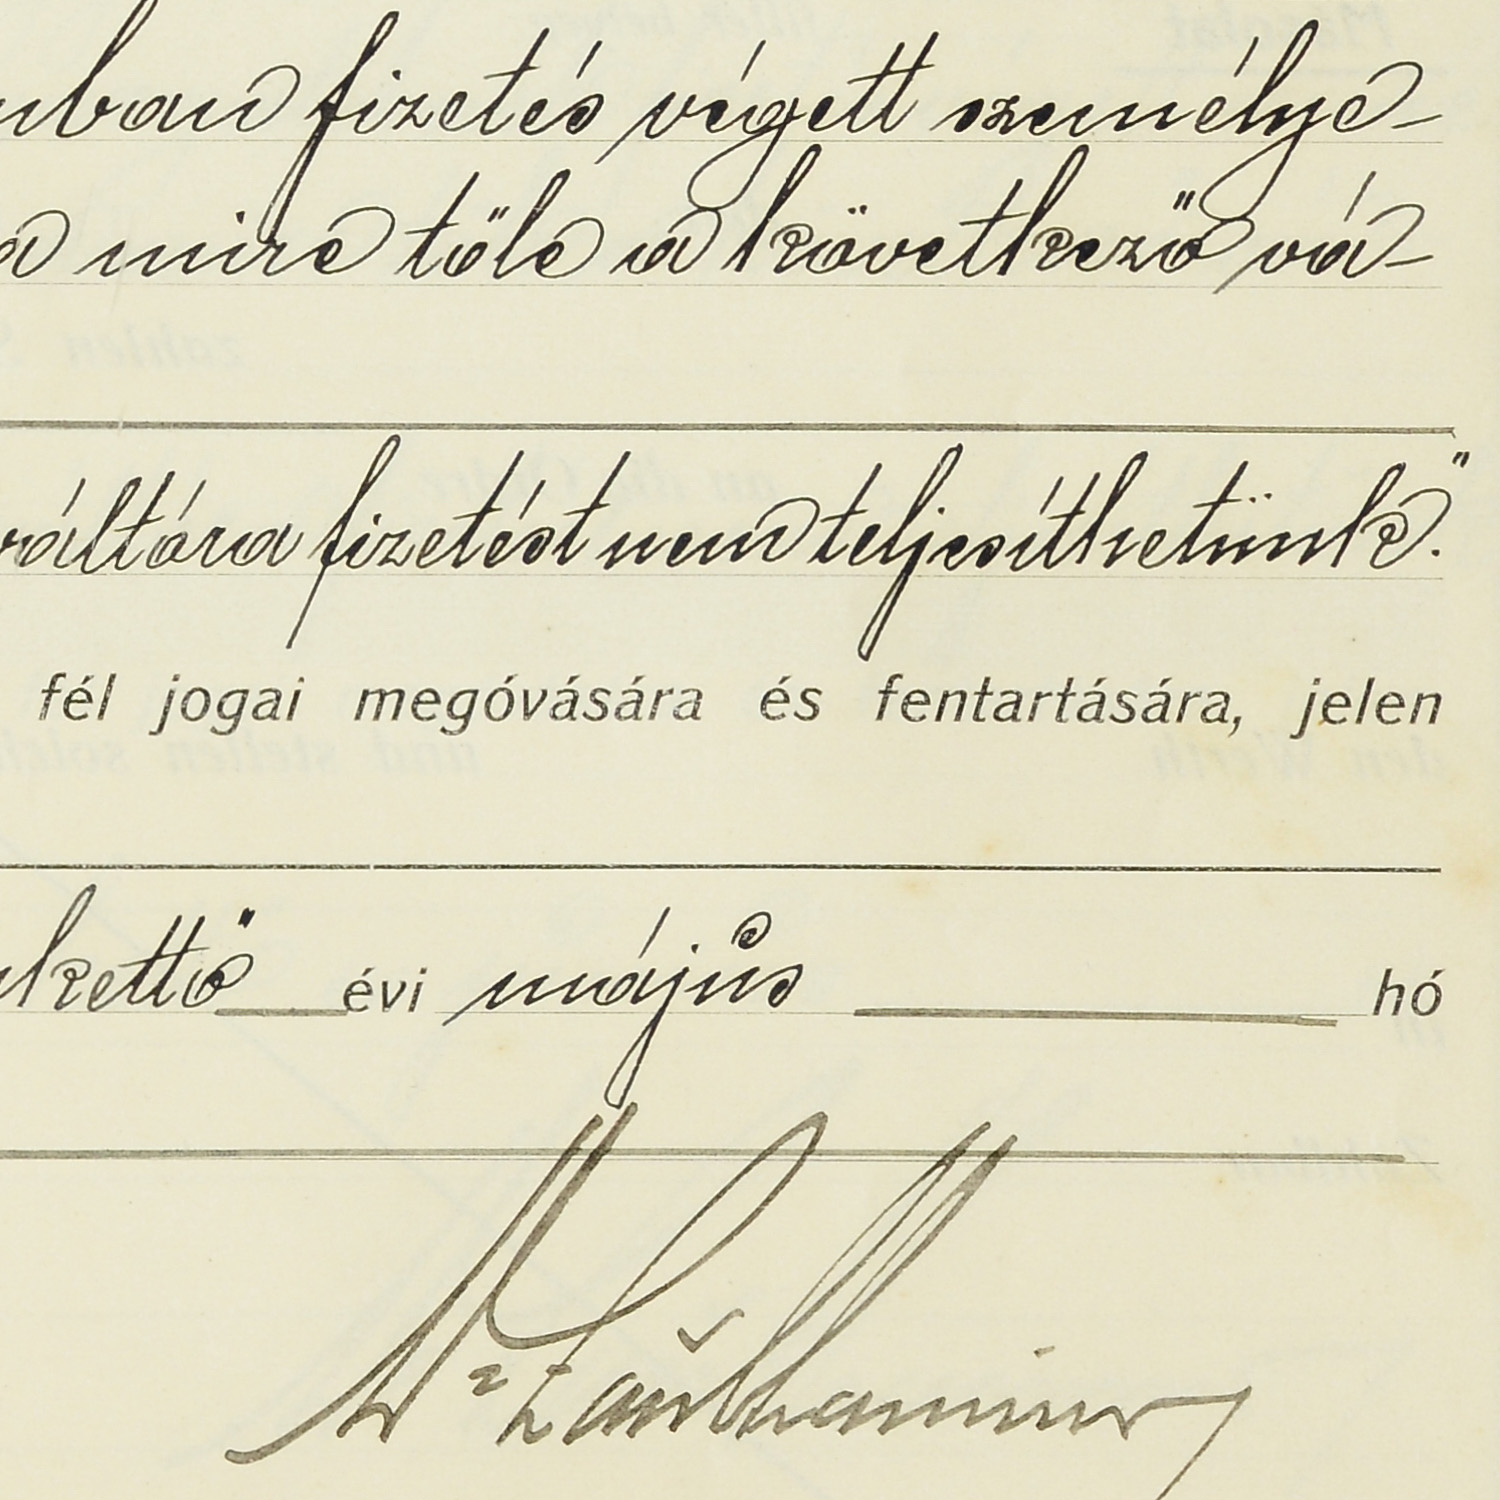 fizetés végett személye-
a mire tőle a következő vá-
váltóra fizetést nem teljesíthetünk."
fél jogai megóvására és fentartására, jelen
évi május hó